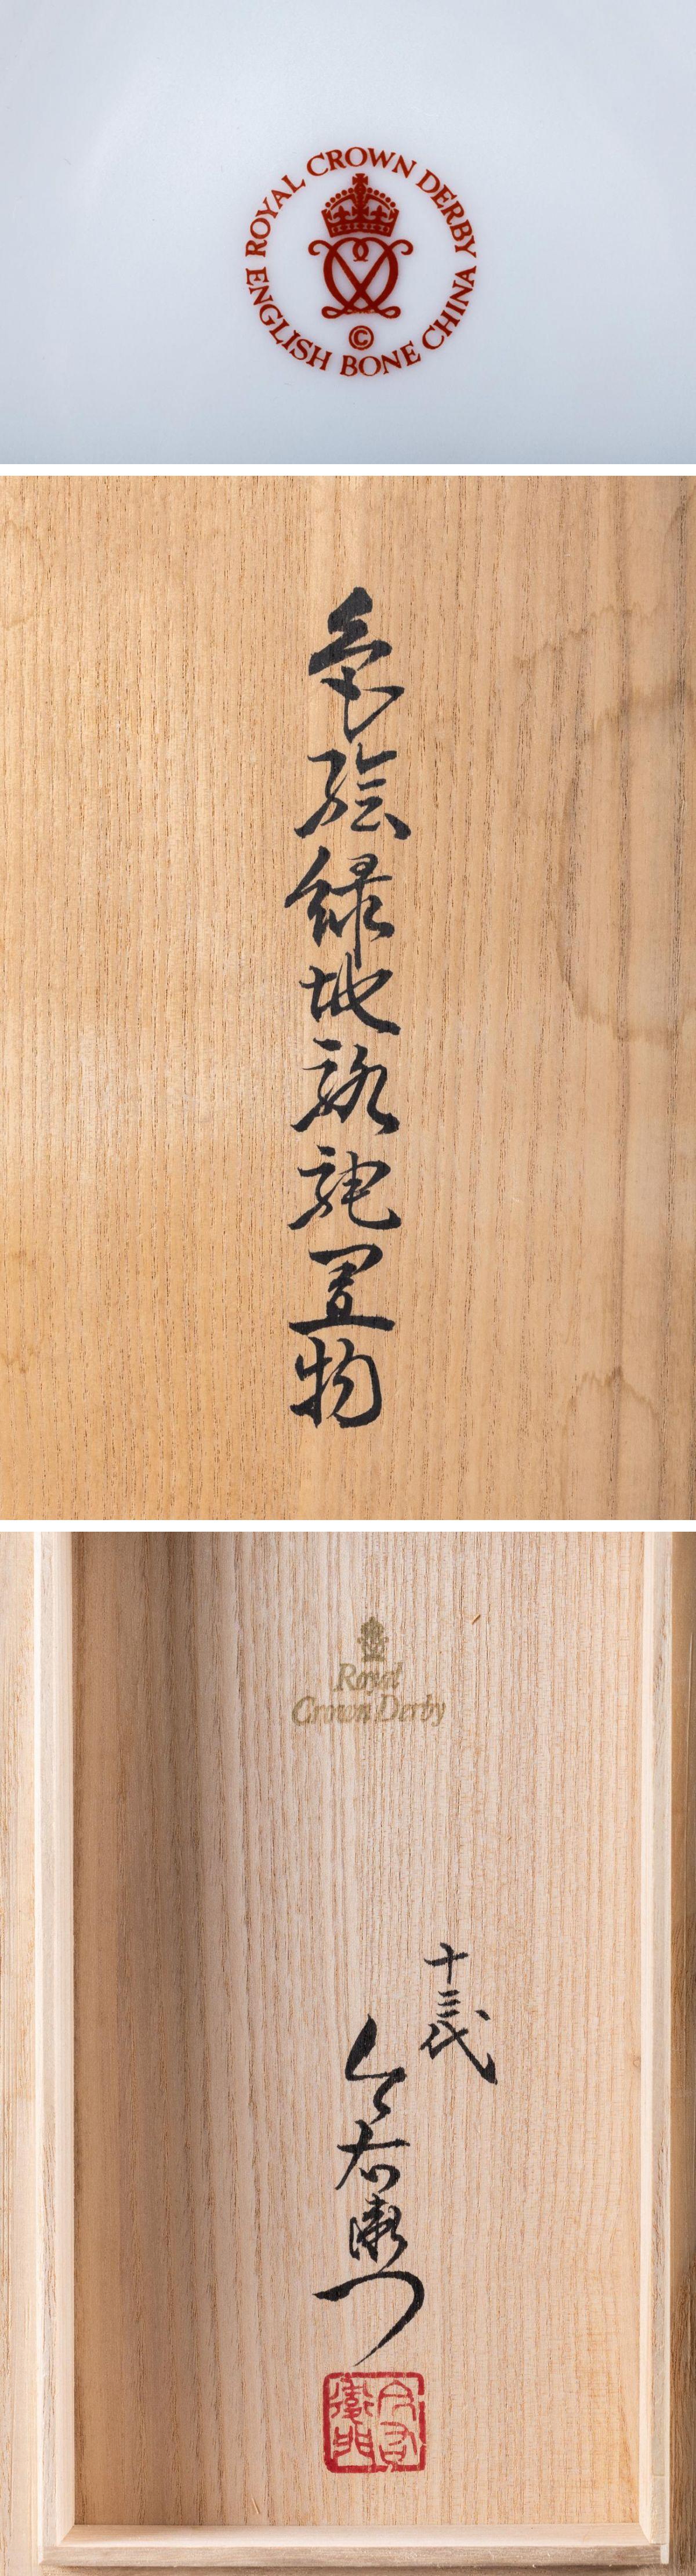 ROYAL CROWN DERBY
ENGLISH BONE CHINA
©
色絵緑地駱駝置物
Royal
Crown Derby
十三代
今右衛门
今右
衛門